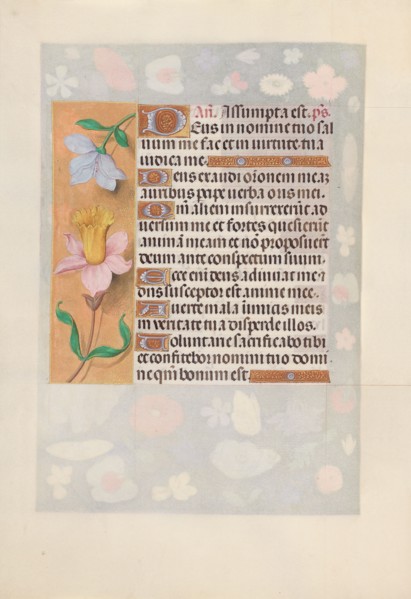 An̄. Assumpta est. p̄s.
Deus in nomine tuo sal
uum me fac et in uirtute tua
iudica me.
Deus exaudi orōnem meā:
auribus pcipe uerba oris mei.
Qm̄ alieni insurrexerūt ad
uersum me et fortes quesierūt
animā meam et nō proposuerūt
deum ante conspectum suum.
Ecce eni deus adiuuat me:
dn̄s susceptor est anime mee.
Auerte mala inimicis meis
in ueritate tua disperde illos.
Voluntarie sacrificabo tibi
et confitebor nomini tuo domi
ne qm̄ bonum est.